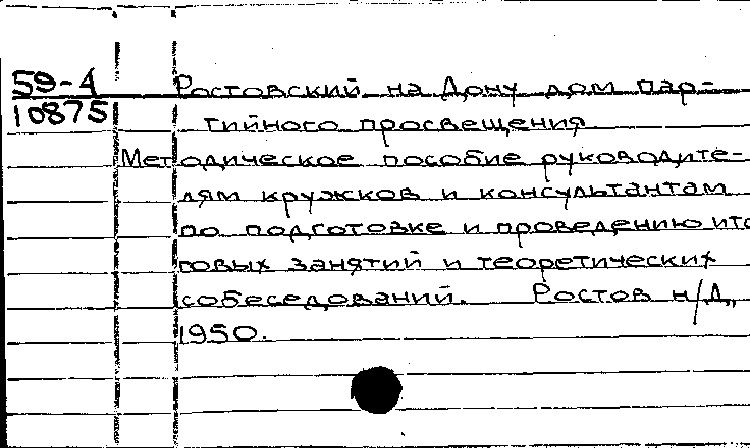 59-4 Ростовский на Дону дом пар-
10875 тийного просвещения
Методическое пособие руководите-
лям кружков и консультантам
по подготовке и проведению ито
говых занятий и теоретических
собеседований. Ростов н/Д,,
1950.